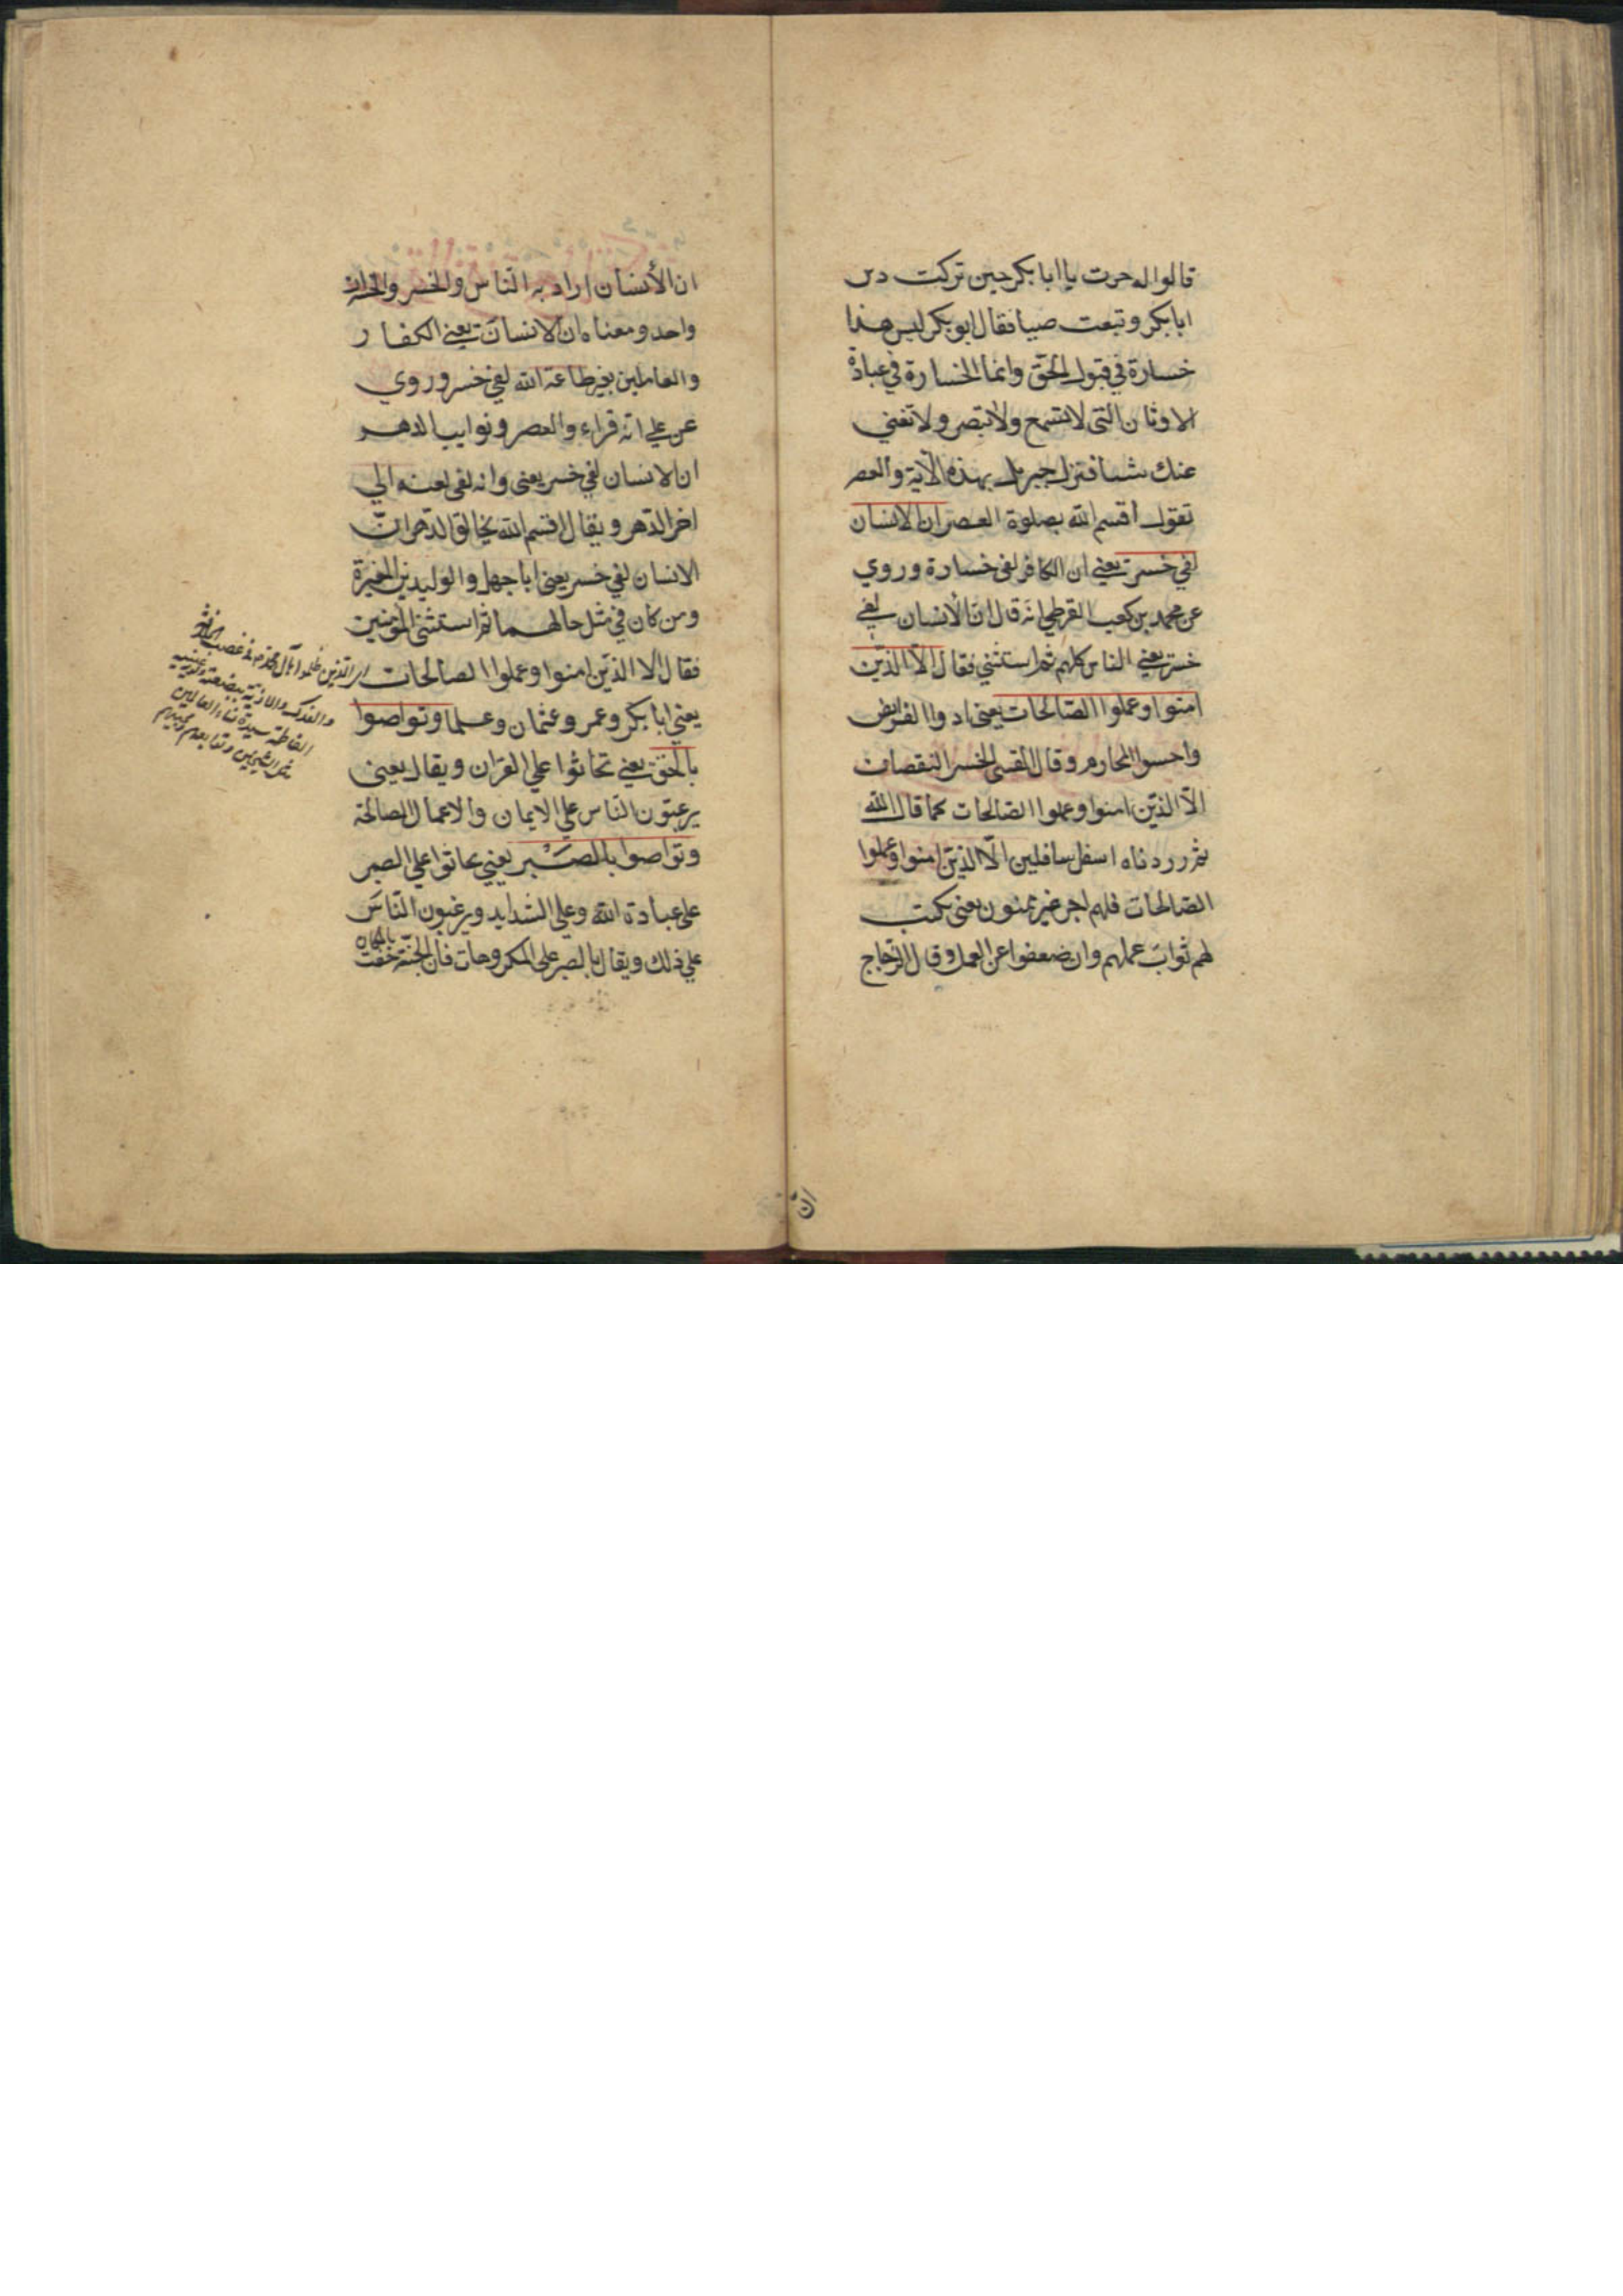 قالوا له خرت يا ابا بكر حين تركت دين
ابا بكر وتبعت صبيا فقال ابو بكر ليس هذا
خسارة في قبول الحق وانما الخسارة في عبادة
الاوثان التى لا تسمع ولا تبصر ولا تغني
عنك شيئا فنزل جبريل بهذه الآية والعصر
تقول اقسم الله بصلوة العصر ان الانسان
لفي خسر يعني ان الكافر لفي خسارة وروي
عن محمد بن كعب القرظي انه قال ان الانسان لفي
خسر يعني الناس كلهم ثم استثني فقال الا الذين
امنوا وعملوا الصالحات يعني ادوا الفرايض
المحارم وقال الخسر النقصان
الا الذين امنوا وعملوا الصالحات كما قال الله
ثم رددناه اسفل سافلين الا الذين امنوا وعملوا
الصالحات فلهم اجر غير ممنون يعني يكتب
لهم ثواب عملهم وان ضعفوا عن العمل وقال الزجاج
ان
ان الانسان اراد به الناس والخسر والخسران
واحد ومعناه ان الانسان يعني الكفار
والعاملين بغير طاعة الله لفي خسر وروي
عن علي انه قراء والعصر ونوايب الدهر
ان الانسان لفي خسر يعنى وانه لفي لعنه الي
اخر الدهر ويقال اقسم الله بخالق الدهر ان
الانسان لفي خسر يعني ابا جهل والوليد بن المغيرة
ومن كان في مثل حالهما ثم استثني المؤمنين
فقال الا الذين امنوا وعملوا الصالحات
يعني ابا بكر وعمر وعثمان وعليا وتواصوا
بالحق يعني تحاثوا علي القران ويقال يعني
يرغبون الناس علي الايمان والاعمال الصالحة
وتواصوا بالصبر يعني تحاثوا علي الصبر
علي عبادة الله وعلي الشدايد ويرغبون الناس
علي ذلك ويقال بالصبر على المكروهات فان الجنة حفت
بالمكاره
الذين ظلموا آل محمد في غصب
والفدك والاذية
الفاطمة سيدة نساء العالمين